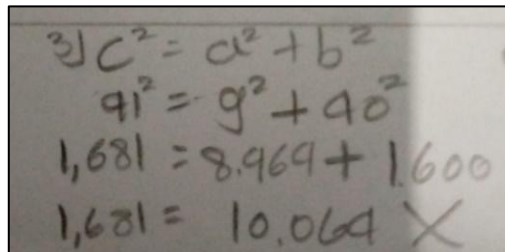 3) c² = a² + b²
41² = 9² + 40²
1,681 = 8.464 + 1.600
1,681 = 10.064 X